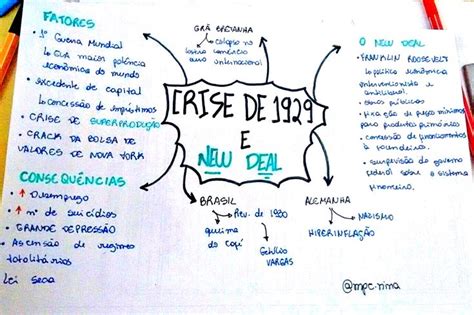 FATORES
• 1º Guerra Mundial
↳ EUA maior potência
econômica do mundo
• Excedente de capital
↳ concessão de empréstimos
• CRISE DE SUPERPRODUÇÃO
• CRACK DA BOLSA DE
VALORES DE NOVA YORK
CONSEQUÊNCIAS
• ↑ Desemprego
• ↑ nº de suicídios
• GRANDE DEPRESSÃO
• Ascensão de regimes
totalitários
Lei seca
GRÃ BRETANHA
• colapso no
comércio
internacional
CRISE DE 1929
E
NEW DEAL
BRASIL
→ Rev. de 1930
queima
do café
Getúlio
VARGAS
ALEMANHA
→ NAZISMO
HIPERINFLAÇÃO
O NEW DEAL
• FRANKLIN ROOSEVELT
↳ política econômica
intervencionista e
• obras públicas
• fixação de preços mínimos
para produtos primários
• concessão de
• supervisão do governo
federal sobre o sistema
financeiro.
@mpc.rima